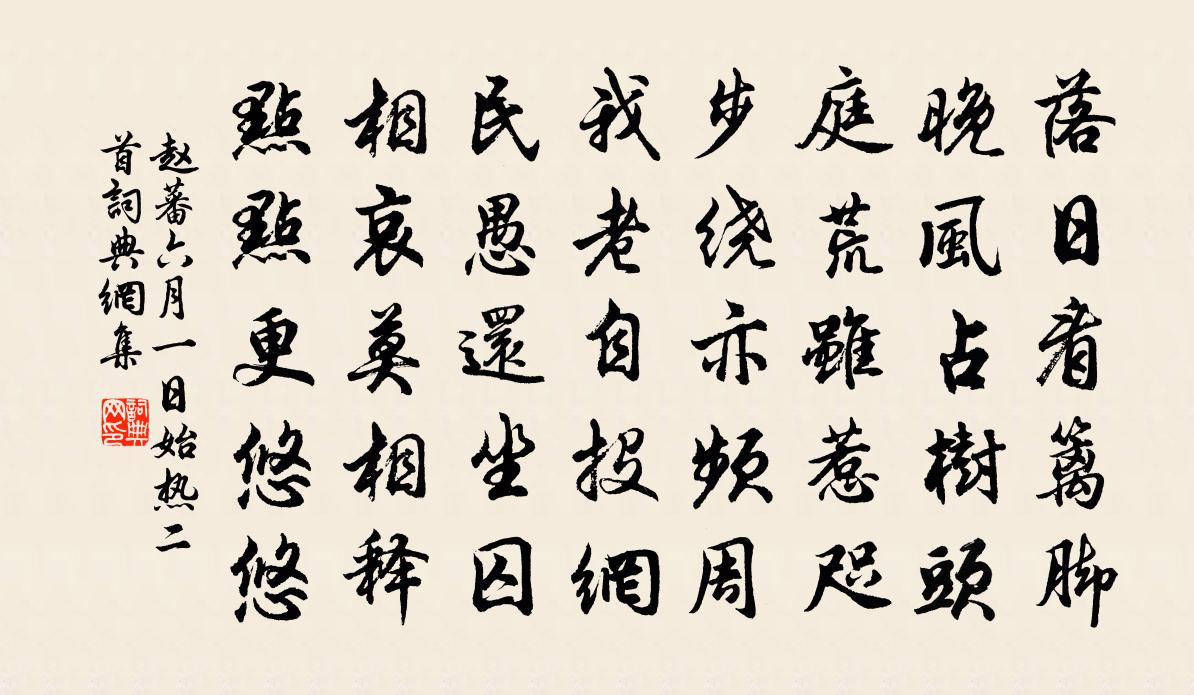 落日看籬脚
晚風占樹頭
庭荒雖惹咫
步绕亦頻周
我老自投網
民愚還坐囚
相哀莫相释
點點更悠悠
赵蕃六月一日始热二
首詞典網集
詞典網印